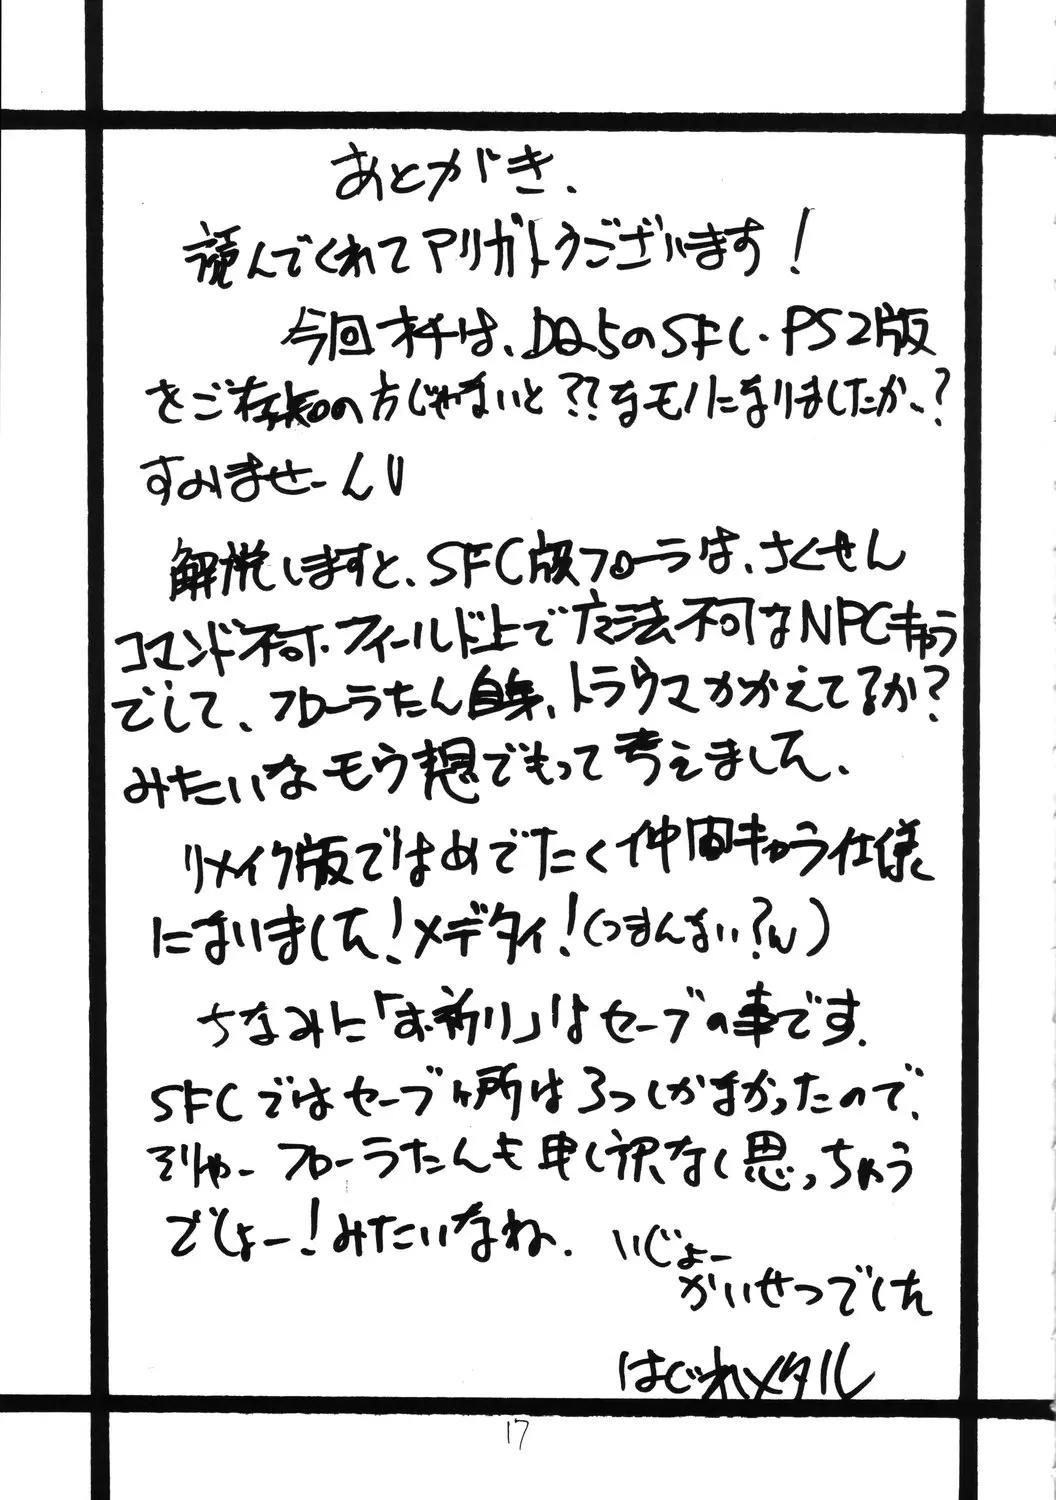 あとがき、
読んでくれてアリガトうございます!
今回オチは、DQ5のSFC・PS2版
をご存知の方じゃないと??なモノになりましたか、?
すみませーんU
解説しますと、SFC版フローラは、さくせん
コマンド不可、フィールド上で方法不可なNPCキャラ
でして、フローラたん自身、トラウマかかえてるか?
みたいなモウ想でもって考えました、
リメイク版ではめでたく仲間キャラ仕様
になりました!メデタイ!(つまんない?w)
ちなみに「お祈り」はセーブの事です.
SFCではセーブヶ所は3つしかなかったので、
そりゃーフローラたんも申し訳なく思っちゃう
でしょー!みたいなね.
いじょー
かいせつでした
はじれメタル
17